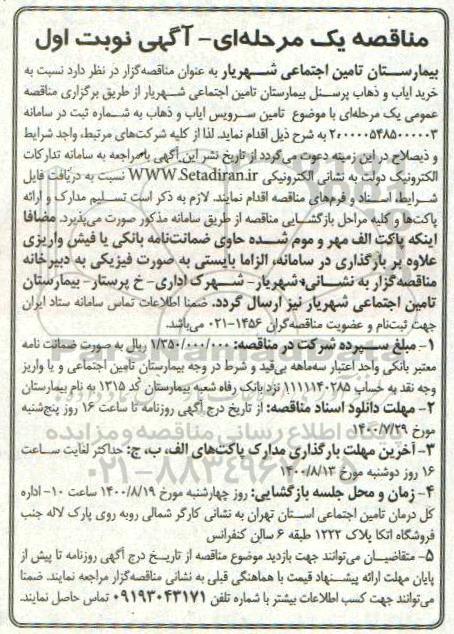 مناقصه یک مرحله‌ای- آگهی نوبت اول
بیمارستان تامین اجتماعی شهریار به عنوان مناقصه‌گزار در نظر دارد نسبت به
خرید ایاب و ذهاب پرسنل بیمارستان تامین اجتماعی شهریار از طریق برگزاری مناقصه
عمومی یک مرحله‌ای با موضوع تامین سرویس ایاب و ذهاب به شماره ثبت در سامانه
۲۰۰۰۰۰۵۴۸۵۰۰۰۰۰۳ به شرح ذیل اقدام نماید. لذا از کلیه شرکت‌های مرتبط، واجد شرایط
و ذیصلاح در این زمینه دعوت می‌گردد از تاریخ نشر این آگهی با مراجعه به سامانه تدارکات
الکترونیک دولت به نشانی الکترونیکی WWW.Setadiran.ir نسبت به دریافت فایل
شرایط، اسناد و فرم‌های مناقصه اقدام نمایند. لازم به ذکر است تسلیم مدارک و ارائه
پاکت‌ها و کلیه مراحل بازگشایی مناقصه از طریق سامانه مذکور صورت می‌پذیرد. مضافا
اینکه پاکت الف مهر و موم شده حاوی ضمانت‌نامه بانکی یا فیش واریزی
علاوه بر بارگذاری در سامانه، الزاما بایستی به صورت فیزیکی به دبیرخانه
مناقصه‌گزار به نشانی: شهریار- شهرک اداری- خ پرستار- بیمارستان
تامین اجتماعی شهریار نیز ارسال گردد. ضمنا اطلاعات تماس سامانه ستاد ایران
جهت ثبت‌نام و عضویت مناقصه‌گران ۱۴۵۶-۰۲۱ می‌باشد.
۱- مبلغ سپرده شرکت در مناقصه: ۱/۳۵۰/۰۰۰/۰۰۰ ریال به صورت ضمانت نامه
معتبر بانکی واحد اعتبار سه‌ماهه بی‌قید و شرط در وجه بیمارستان تامین اجتماعی و یا واریز
وجه نقد به حساب ۱۱۱۱۱۴۰۲۸۵ نزد بانک رفاه شعبه بیمارستان کد ۱۳۱۵ به نام بیمارستان
۲- مهلت دانلود اسناد مناقصه: از تاریخ درج آگهی روزنامه تا ساعت ۱۶ روز پنج‌شنبه
مورخ ۱۴۰۰/۷/۲۹.
۳- آخرین مهلت بارگذاری مدارک پاکت‌های الف، ب، ج: حداکثر لغایت ساعت
۱۶ روز دوشنبه مورخ ۱۴۰۰/۸/۱۳
۴- زمان و محل جلسه بازگشایی: روز چهارشنبه مورخ ۱۴۰۰/۸/۱۹ ساعت ۱۰- اداره
کل درمان تامین اجتماعی استان تهران به نشانی کارگر شمالی روبه روی پارک لاله جنب
فروشگاه اتکا پلاک ۱۲۲۲ طبقه ۶ سالن کنفرانس
۵- متقاضیان می‌توانند جهت بازدید موضوع مناقصه از تاریخ درج آگهی روزنامه تا پیش از
پایان مهلت ارائه پیشنهاد قیمت با هماهنگی قبلی به نشانی مناقصه‌گزار مراجعه نمایند. ضمنا
می‌توانند جهت کسب اطلاعات بیشتر با شماره تلفن ۰۹۱۹۳۰۴۳۱۷۱ تماس حاصل نمایند.
پایگاه اطلاع رسانی مناقصه و مزایده